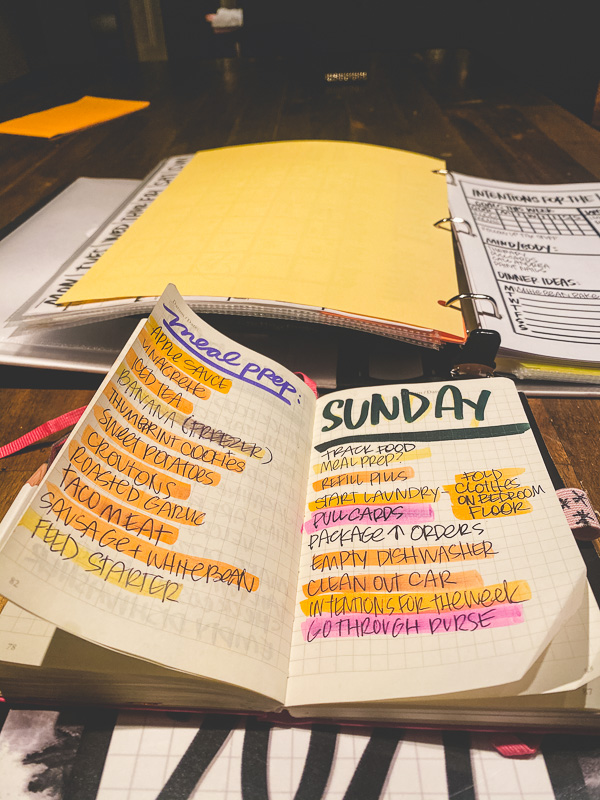 INTENTIONS FOR THE
MIND/BODY:
DINNER IDEAS:
M
T
W
T
F
S
meal prep:
APPLE SAUCE
VINAGRETTE
ICED TEA
BANANA (FREEZER)
THUMBPRINT COOKIES
SWEET POTATOES
CROUTONS
ROASTED GARLIC
TACO MEAT
SAUSAGE + WHITE BEAN
FEED STARTER
82
78
SUNDAY
TRACK FOOD
MEAL PREP?
REFILL PILLS
START LAUNDRY - FOLD
CLOTHES
ON BEDROOM
FLOOR
PULL CARDS
PACKAGE ↑ ORDERS
EMPTY DISHWASHER
CLEAN OUT CAR
INTENTIONS FOR THE WEEK
GO THROUGH PURSE